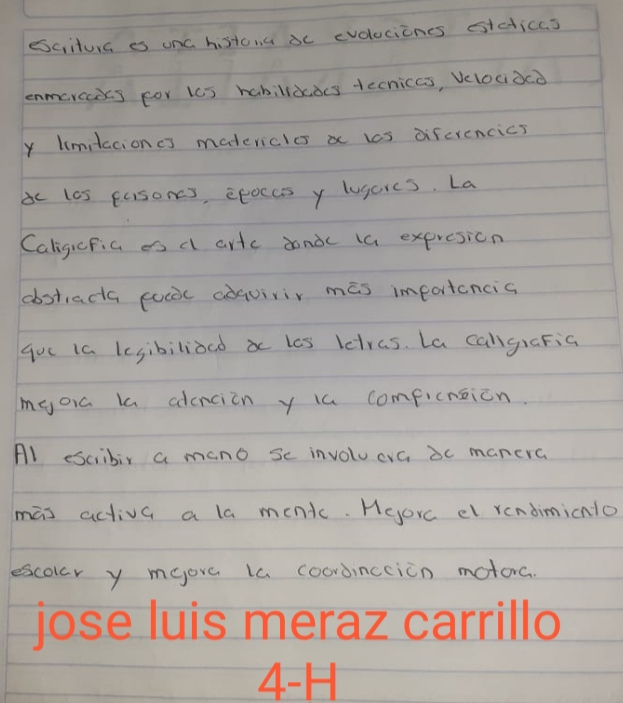 escritura es una historia de evoluciones esteticas
enmarcadas por las habilidades tecnicas, velocidad
y limitaciones materiales de las diferencias
de las personas, épocas y lugares. La
Caligrafia es el arte donde la expresion
abstracta puede adquirir más importancia
que la legibilidad de las letras. La caligrafia
mejora la atención y la comprensión.
Al escribir a mano se involucra de manera
más activa a la mente. Mejora el rendimiento
escolar y mejora la coordinación motora.
jose luis meraz carrillo
4-H